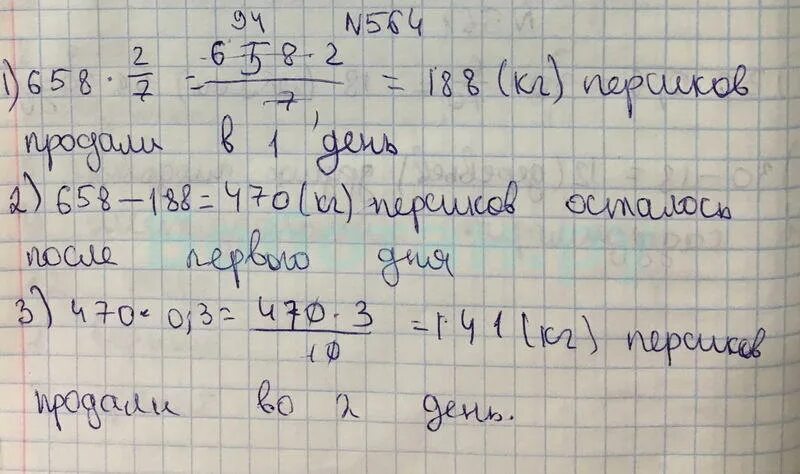 94 N564
1) 658 · 2/7 = 658 · 2/7 = 188 (кг) персиков
продали в 1 день
2) 658 – 188 = 470 (кг) персиков осталось
после первого дня
3) 470 · 0,3 = 470 · 3/10 = 141 (кг) персиков
продали во 2 день.